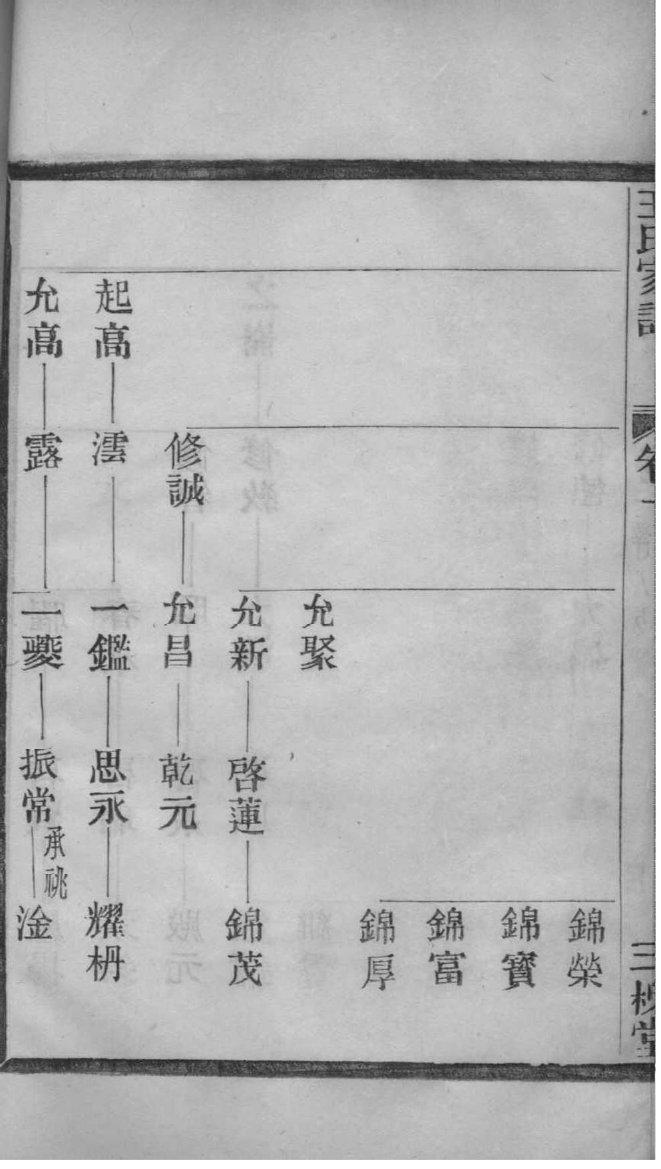 王氏家譜
卷一
三槐堂
錦榮
錦寶
錦富
錦厚
允聚
允新
啓蓮
錦茂
修誠
允昌
乾元
起高
澐
一鑑
思永
耀枬
允高
露
一夔
振常
承祧
淦